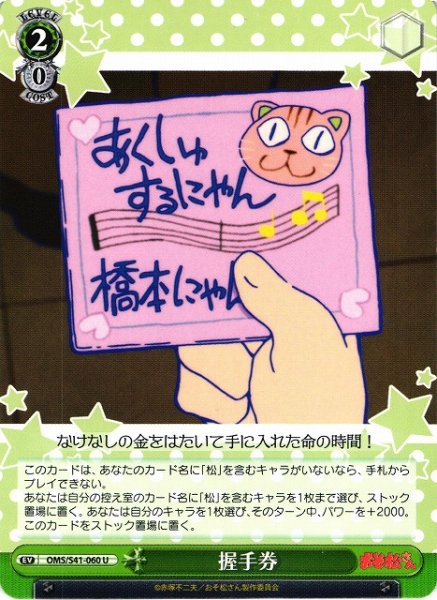 LEVEL
2
0
COST
あくしゅ
するにゃん
橋本にゃん
なけなしの金をはたいて手に入れた命の時間！
このカードは、あなたのカード名に「松」を含むキャラがいないなら、手札から
プレイできない。
あなたは自分の控え室のカード名に「松」を含むキャラを1枚まで選び、ストック
置場に置く。あなたは自分のキャラを1枚選び、そのターン中、パワーを+2000。
このカードをストック置場に置く。
EV OMS/S41-060 U
握手券
おそ松さん
©赤塚不二夫／おそ松さん製作委員会